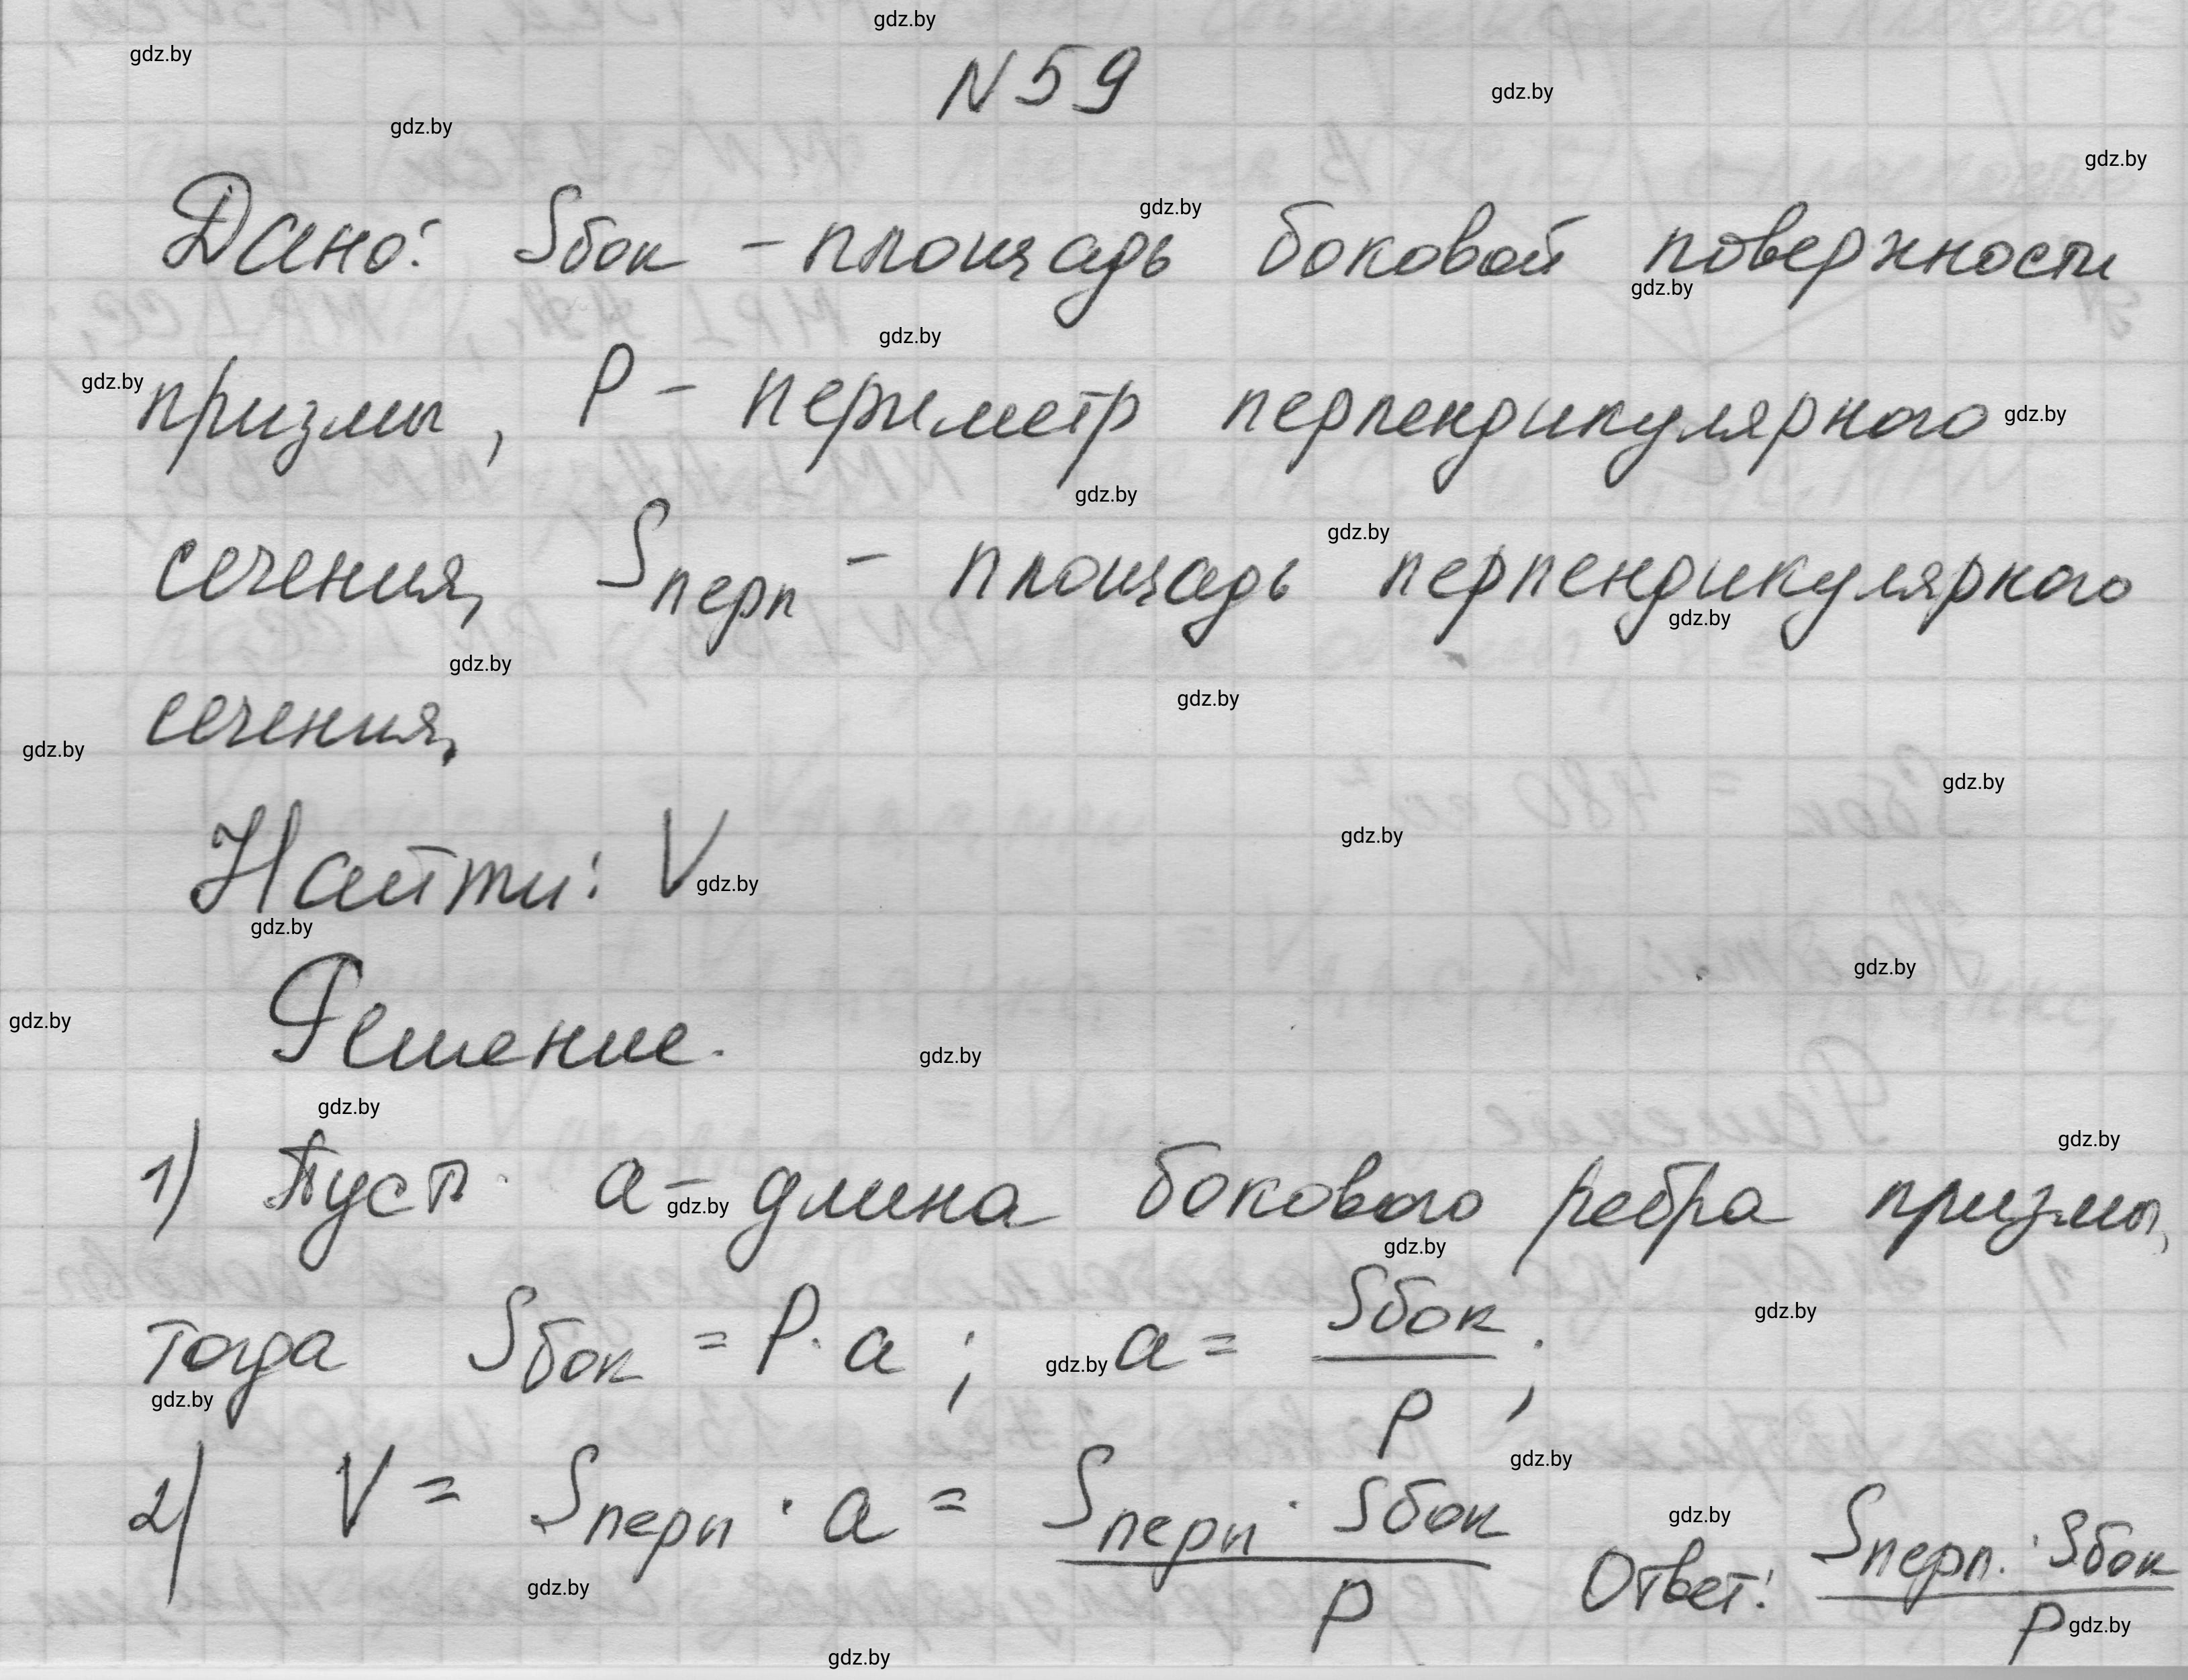 N 59
Дано: Sбок - площадь боковой поверхности
призмы, P - периметр перпендикулярного
сечения, Sперп - площадь перпендикулярного
сечения.
Найти: V
Решение.
1) Пуст. a - длина бокового ребра призмы,
тогда Sбок = P · a ; a = Sбок / P ;
2) V = Sперп · a = Sперп · Sбок / P Ответ: Sперп. · Sбок / P
gdz.by